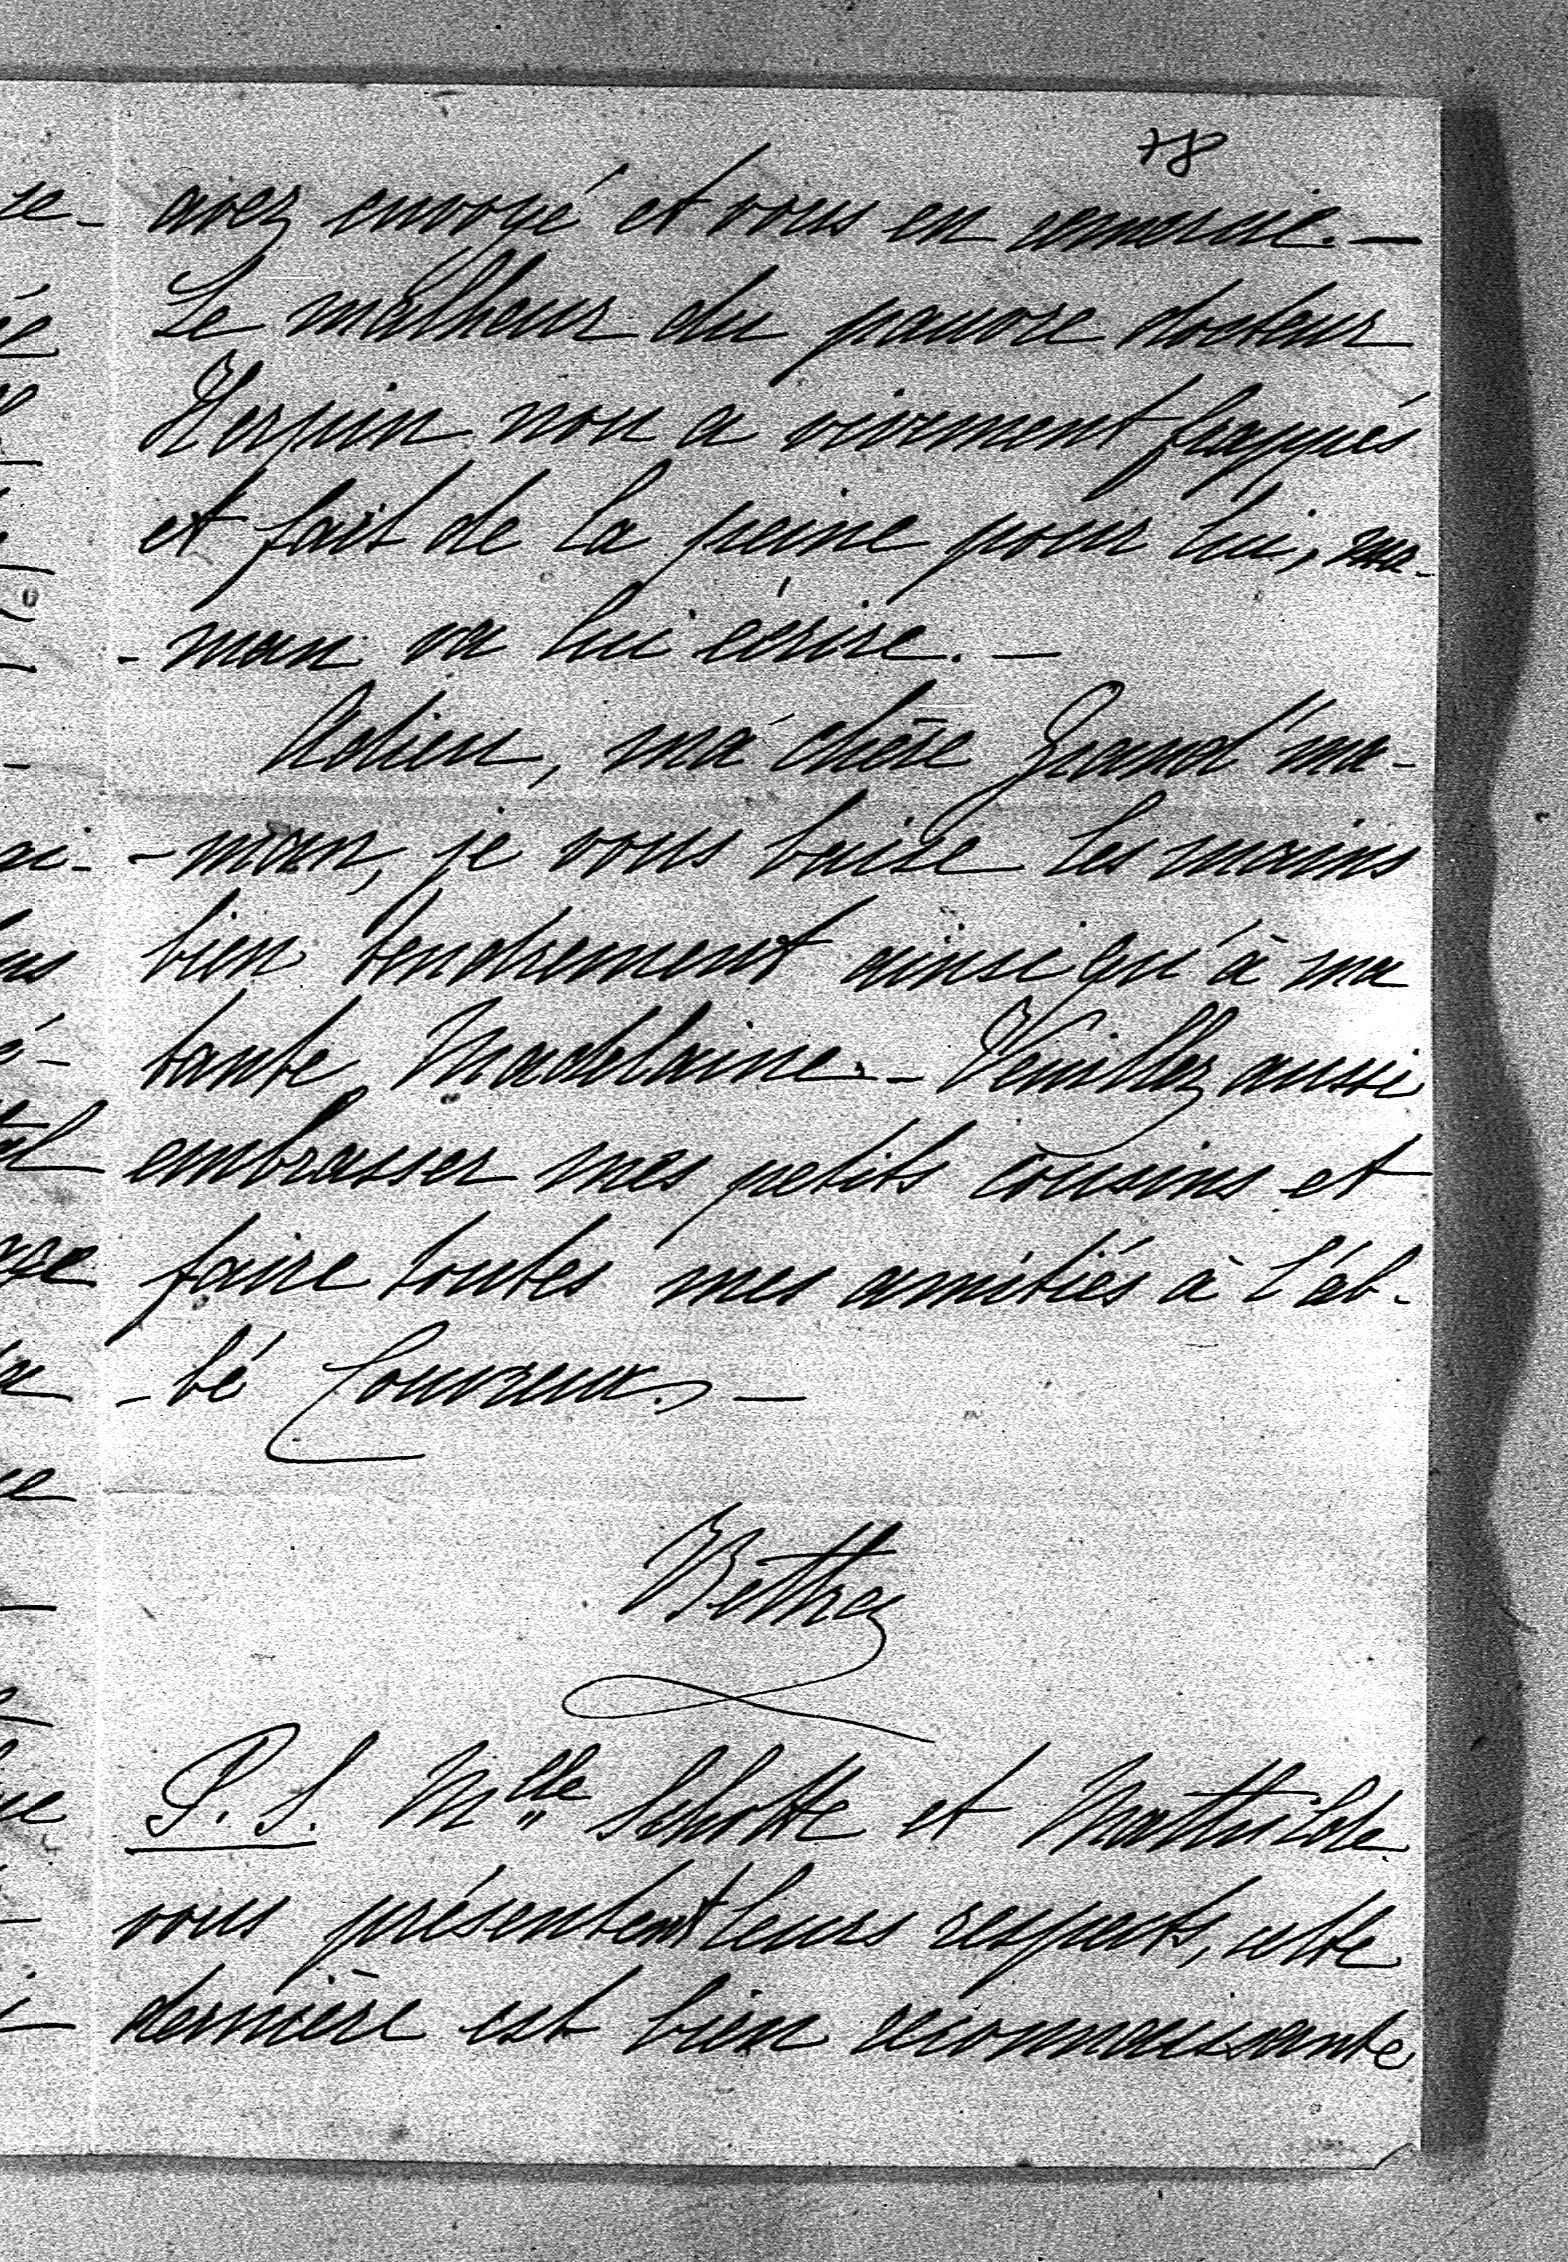 78
avez envoyé et vous en remercie. —
Le malheur du pauvre docteur
Herpin nou a vivement frappés
et fait de la peine pour lui, ma-
- man va lui écrire. —
Adieu, ma chère Grand'ma-
- man, je vous baise les mains
bien tendrement ainsi qu'à ma
tante Madelaine. — Veuillez aussi
embrasser mes petits cousins et
faire toutes mes amitiés à l'ab-
- bé Couvreux. —
Bethsy
P. S. Mlle Schotte et Mathilde
vous présentent leurs respects, cette
dernière est bien reconnaissante